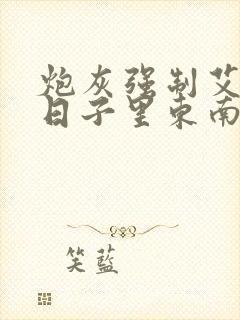 炮灰强制艾
日子里东南
笑蓝